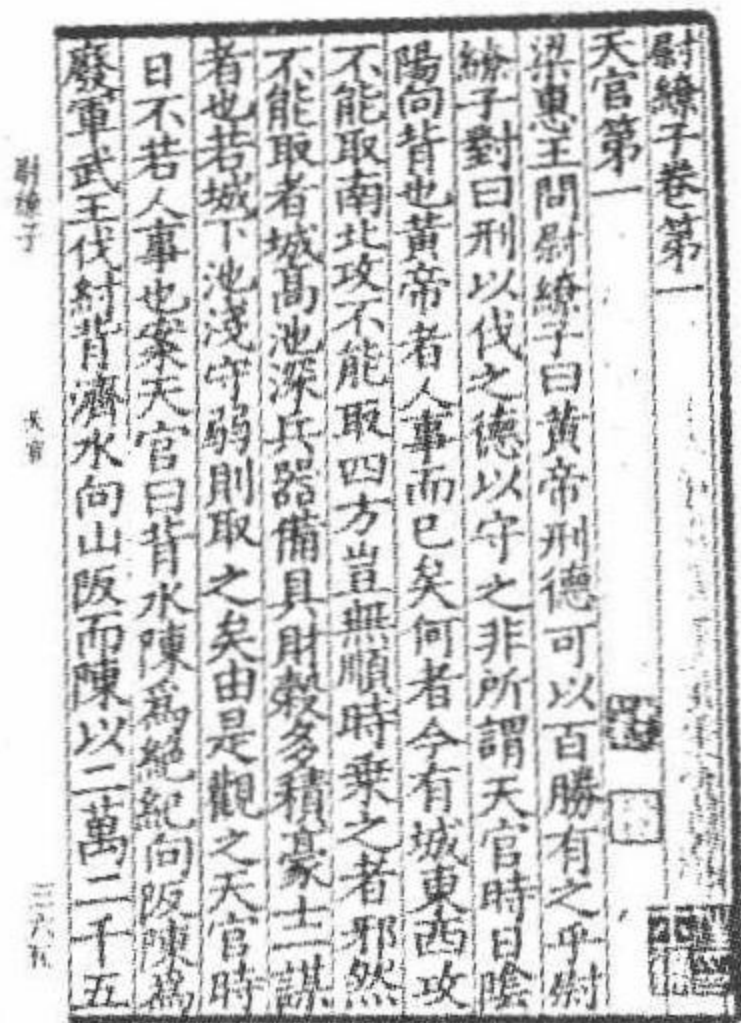 尉繚子卷第一
天官第一
梁惠王問尉繚子曰黃帝刑德可以百勝有之乎尉
繚子對曰刑以伐之德以守之非所謂天官時日陰
陽向背也黃帝者人事而已矣何者今有城東西攻
不能取南北攻不能取四方豈無順時乗之者邪然
不能取者城髙池深兵器備具財穀多積豪士一謀
者也若城下池淺守弱則取之矣由是觀之天官時
日不若人事也案天官曰背水陳爲絕紀向阪陳爲
廢軍武王伐紂背濟水向山阪而陳以二萬二千五
尉繚子
天官
三六五